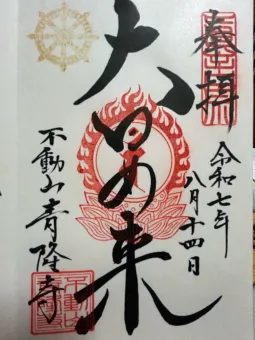 奉拝
令和七年
八月十四日
大日如来
不動山 青隆寺